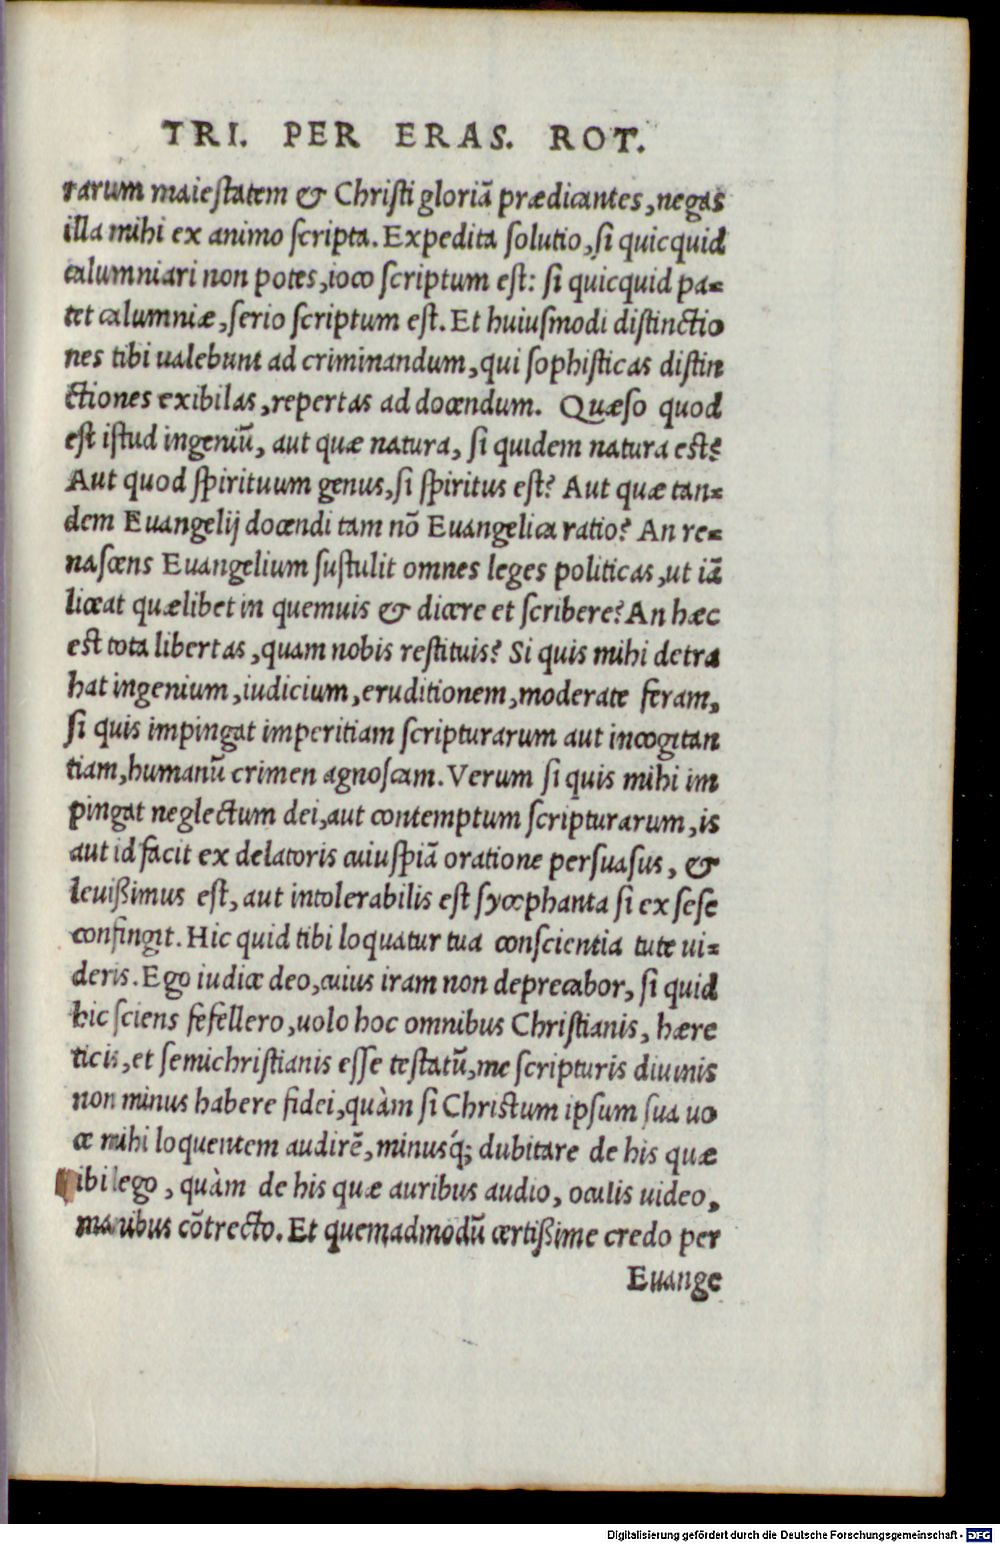 TRI. PER ERAS. ROT.
rarum maiestatem & Christi gloriā prædicantes, negas
illa mihi ex animo scripta. Expedita solutio, si quicquid
calumniari non potes, ioco scriptum est: si quicquid pa-
tet calumniæ, serio scriptum est. Et huiusmodi distinctio
nes tibi ualebunt ad criminandum, qui sophisticas distin
ctiones exibilas, repertas ad docendum. Quæso quod
est istud ingeniū, aut quæ natura, si quidem natura est?
Aut quod spirituum genus, si spiritus est? Aut quæ tan-
dem Euangelij docendi tam nō Euangelica ratio? An re-
nascens Euangelium sustulit omnes leges politicas, ut iā
liceat quælibet in quemuis & dicere et scribere? An hæc
est tota libertas, quam nobis restituis? Si quis mihi detra
hat ingenium, iudicium, eruditionem, moderate feram,
si quis impingat imperitiam scripturarum aut incogitan
tiam, humanū crimen agnoscam. Verum si quis mihi im
pingat neglectum dei, aut contemptum scripturarum, is
aut id facit ex delatoris cuiuspiā oratione persuasus, &
leuißimus est, aut intolerabilis est sycophanta si ex sese
confingit. Hic quid tibi loquatur tua conscientia tute ui-
deris. Ego iudice deo, cuius iram non deprecabor, si quid
hic sciens fefellero, uolo hoc omnibus Christianis, hære
ticis, et semichristianis esse testatū, me scripturis diuinis
non minus habere fidei, quàm si Christum ipsum sua uo
ce mihi loquentem audirē, minusq́; dubitare de his quæ
ibi lego, quàm de his quæ auribus audio, oculis uideo,
manibus cōtrecto. Et quemadmodū certißime credo per
Euange
Digitalisierung gefördert durch die Deutsche Forschungsgemeinschaft - DFG